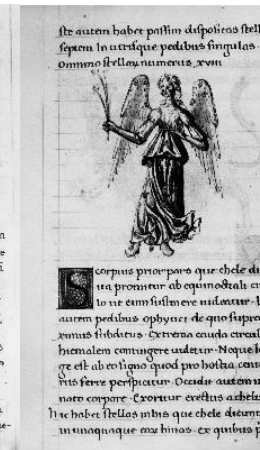 ste autem habet passim dispositas stell
septem In utrisque pedibus singulas
Omnino stellarum numerus xviii
Scorpius prior pars que chele di
ita promitur ab equinoctiali cir
lo ut eum sustinere uideatur
autem pedibus ophyuci de quo supra
ximus subditus Extrema cauda circul
hiemalem contingere uidetur Neque lo
ge est ab eo signo quod pro hostia cent
rus ferre perspicitur Occidit autem in
nato corpore Exoritur erectus a chelis
hic habet stellas in his que chele dicunt
in unaquaque earum binas ex quibus p